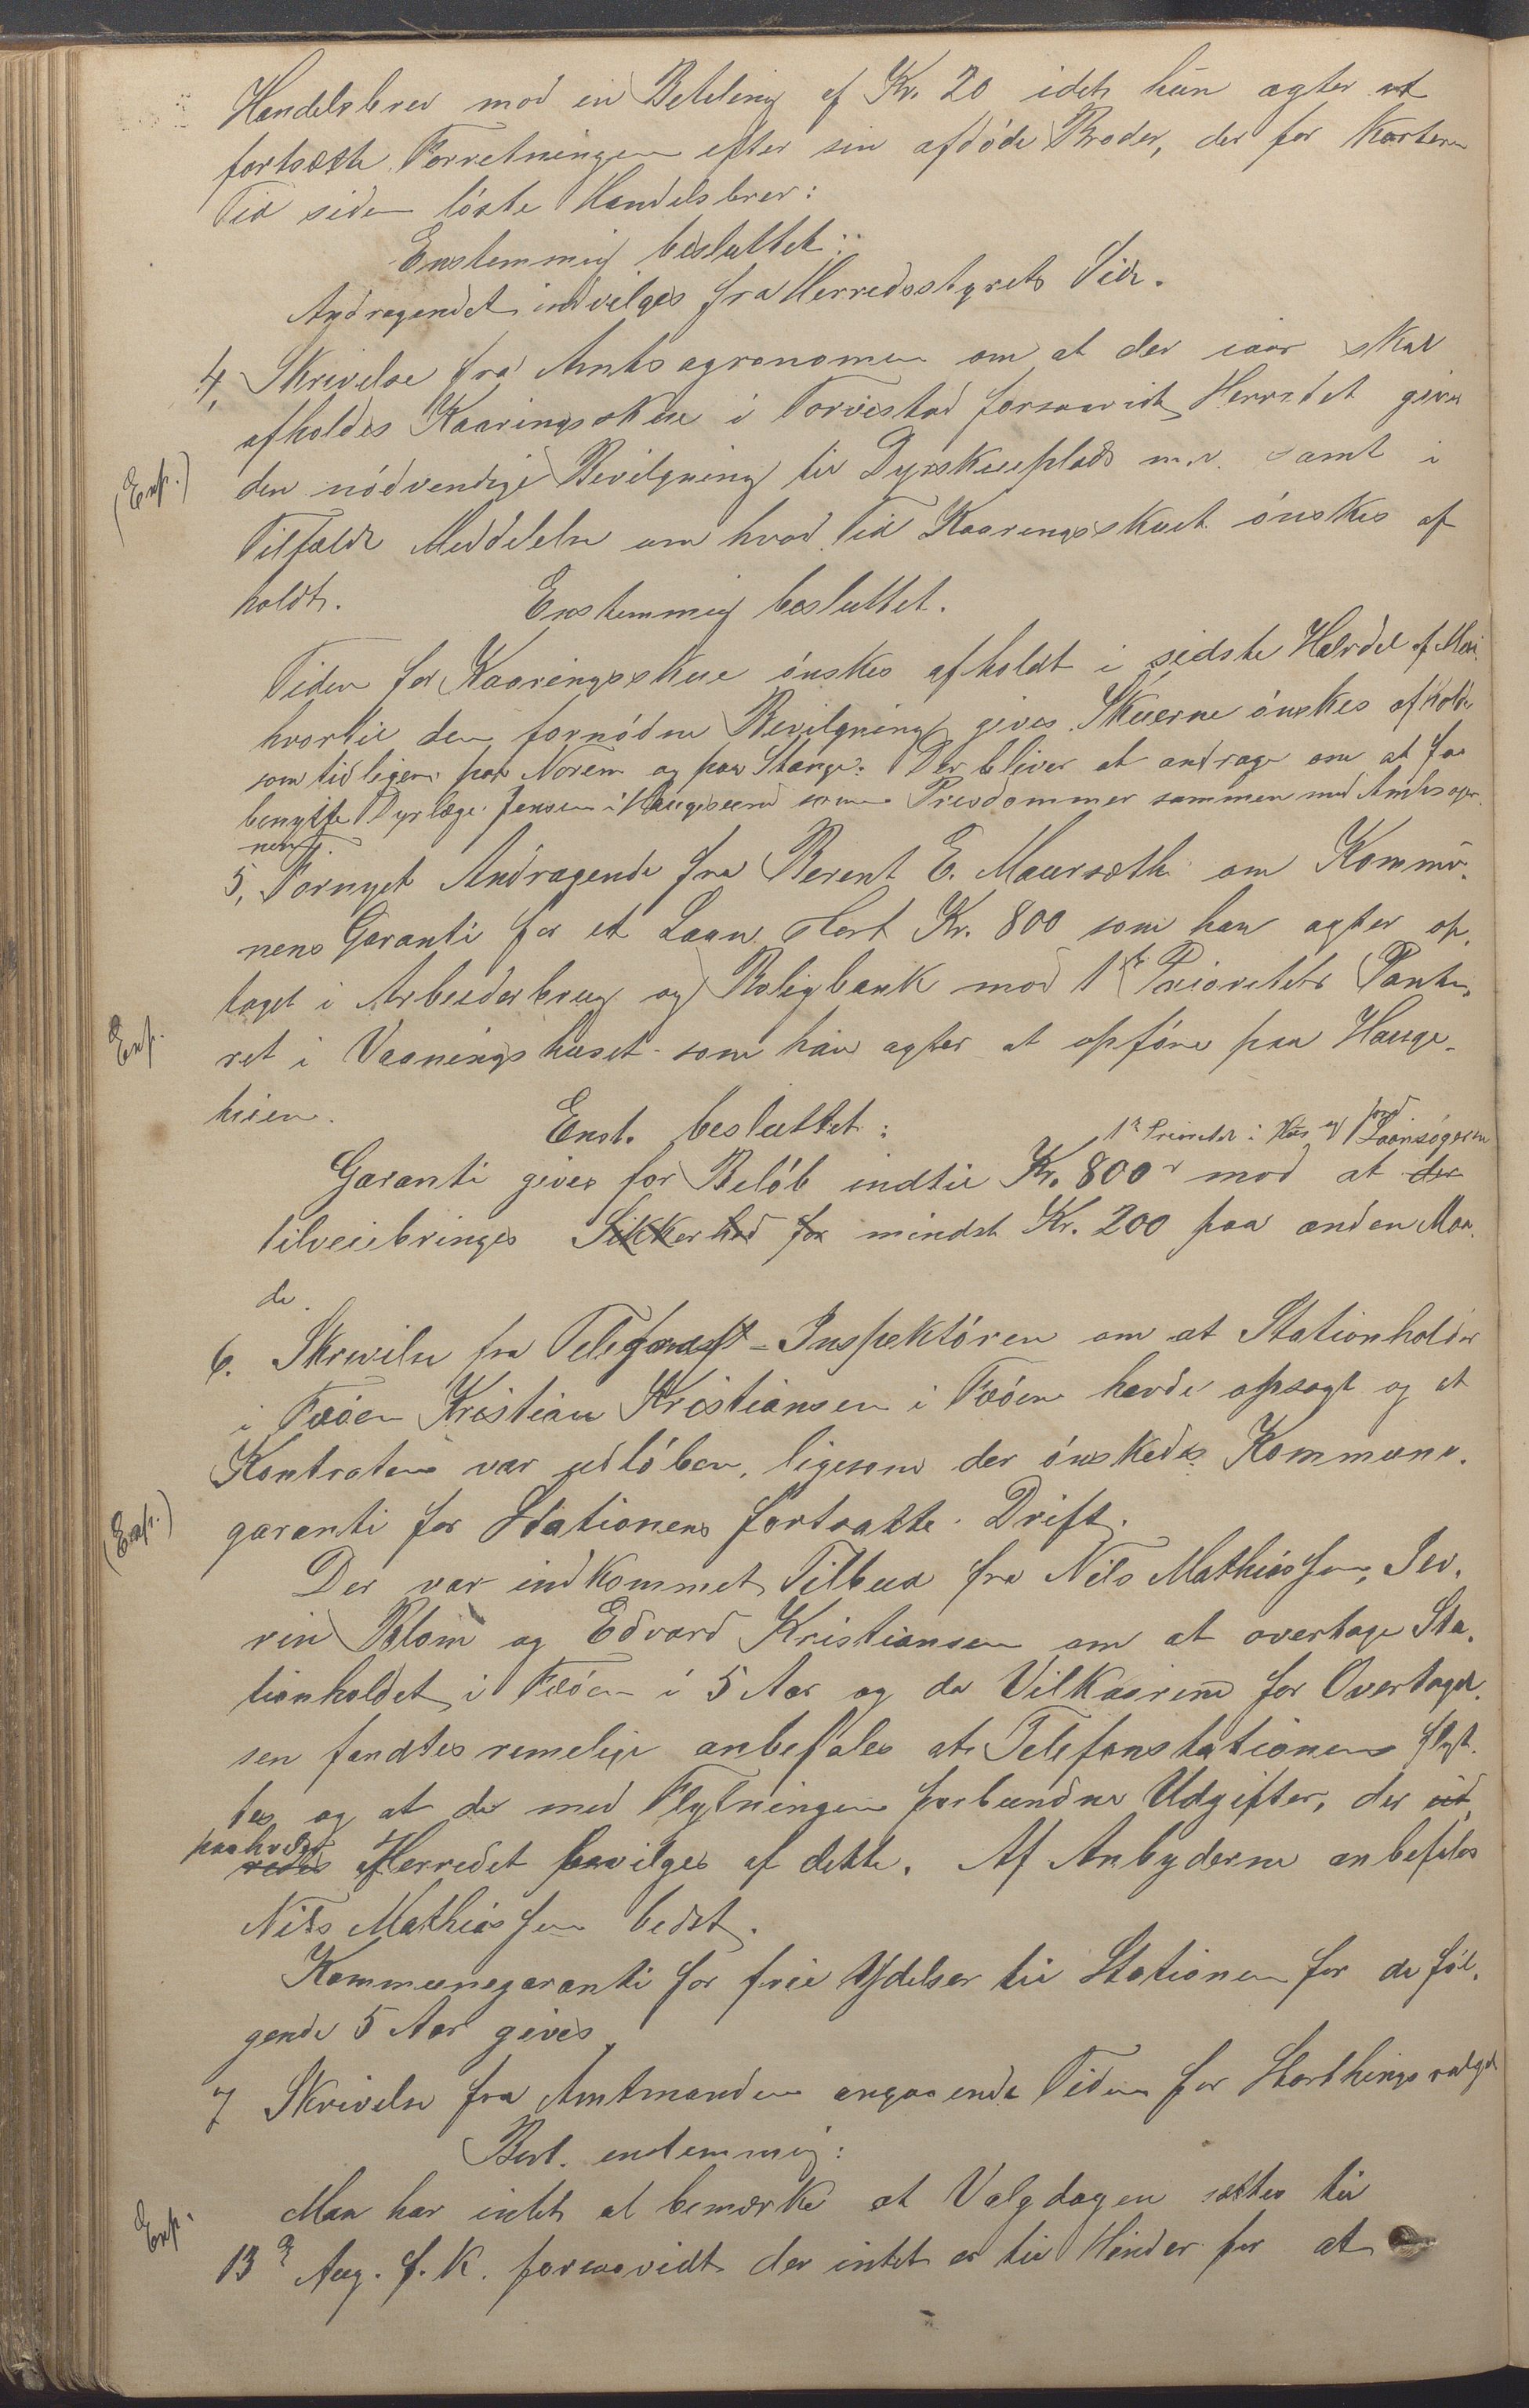 Handelsbrev mod en Betaling af Kr. 20 idet hun agter at
fortsætte Forretningen efter sin afdöde Broder, der for kortere
Tid siden löste Handelsbrev:
Enstemmig besluttet:
Andragendet indvilges fra Herredsstyrets Side.
4, Skrivelse fra Amtsagronomen om at der iaar skal
afholdes Kaaringsskue i Torvestad forsaavidt Herredet giver
den nödvendige Bevilgning til Dyrskueplads m.v. samt i
(Exp.)
Tilfælde Meddelelse om hvad Tid Kaaringsskuet önskes af
holdt. Enstemmig besluttet.
Tiden for Kaaringsskue önskes afholdt i sidste Halvdel af Mai
hvortil den fornödne Bevilgning gives. Skuerne önskes afholdt
som tidligere paa Norem og paa Stange. Der bliver at andrage om at faa
benytte Dyrlæge Jensen i Haugesund som Prisdommer sammen med Amtsagro-
nomen.
5, Fornyet Andragende fra Berent E. Maursæth om Kommu-
nens Garanti for et Laan stort Kr. 800 som han agter op-
taget i Arbeiderbrug og Boligbank mod 1ste Prioritets Pante-
ret i Vaaningshuset som han agter at opföre paa Hauge-
Exp.
heien. Enst. besluttet:
1ste Prioritet i Hus og Jord Laansögeren
Garanti gives for Belöb indtil Kr. 800 mod at der
tilveiebringes Sikkerhed for mindst Kr. 200 paa anden Maa-
de.
6. Skrivelse fra Telegraf-Inspektören om at Stationholder
i Fæöen Kristian Kristiansen i Fæöen havde opsagt og at
Kontrakten var udlöben, ligesom der önskedes Kommune-
garanti for Stationens fortsatte Drift.
(Exp.)
Der var indkommet Tilbud fra Nils Mathiassen, Sev-
rin Blom og Edvard Kristiansen om at overtage Sta-
tionholdet i Fæöen i 5 Aar og da Vilkaarene for Overtagel-
sen fandtes rimelige anbefales at Telefonstationen flyt-
tes og at de med Flytningen forbundne Udgifter, der ud
paahviler
redes af Herredet bevilges af dette. Af Anbyderne anbefales
Nils Mathiassen bedst.
Kommunegaranti for frie Ydelser til Stationen for de föl-
gende 5 Aar gives.
7 Skrivelse fra Amtmanden angaaende Tiden for Storthingsvalget
Besl. enstemmig:
Man har intet at bemærke at Valgdagen sættes til
Exp.
13de Aug. f. K. forsaavidt der intet er til Hinder for at